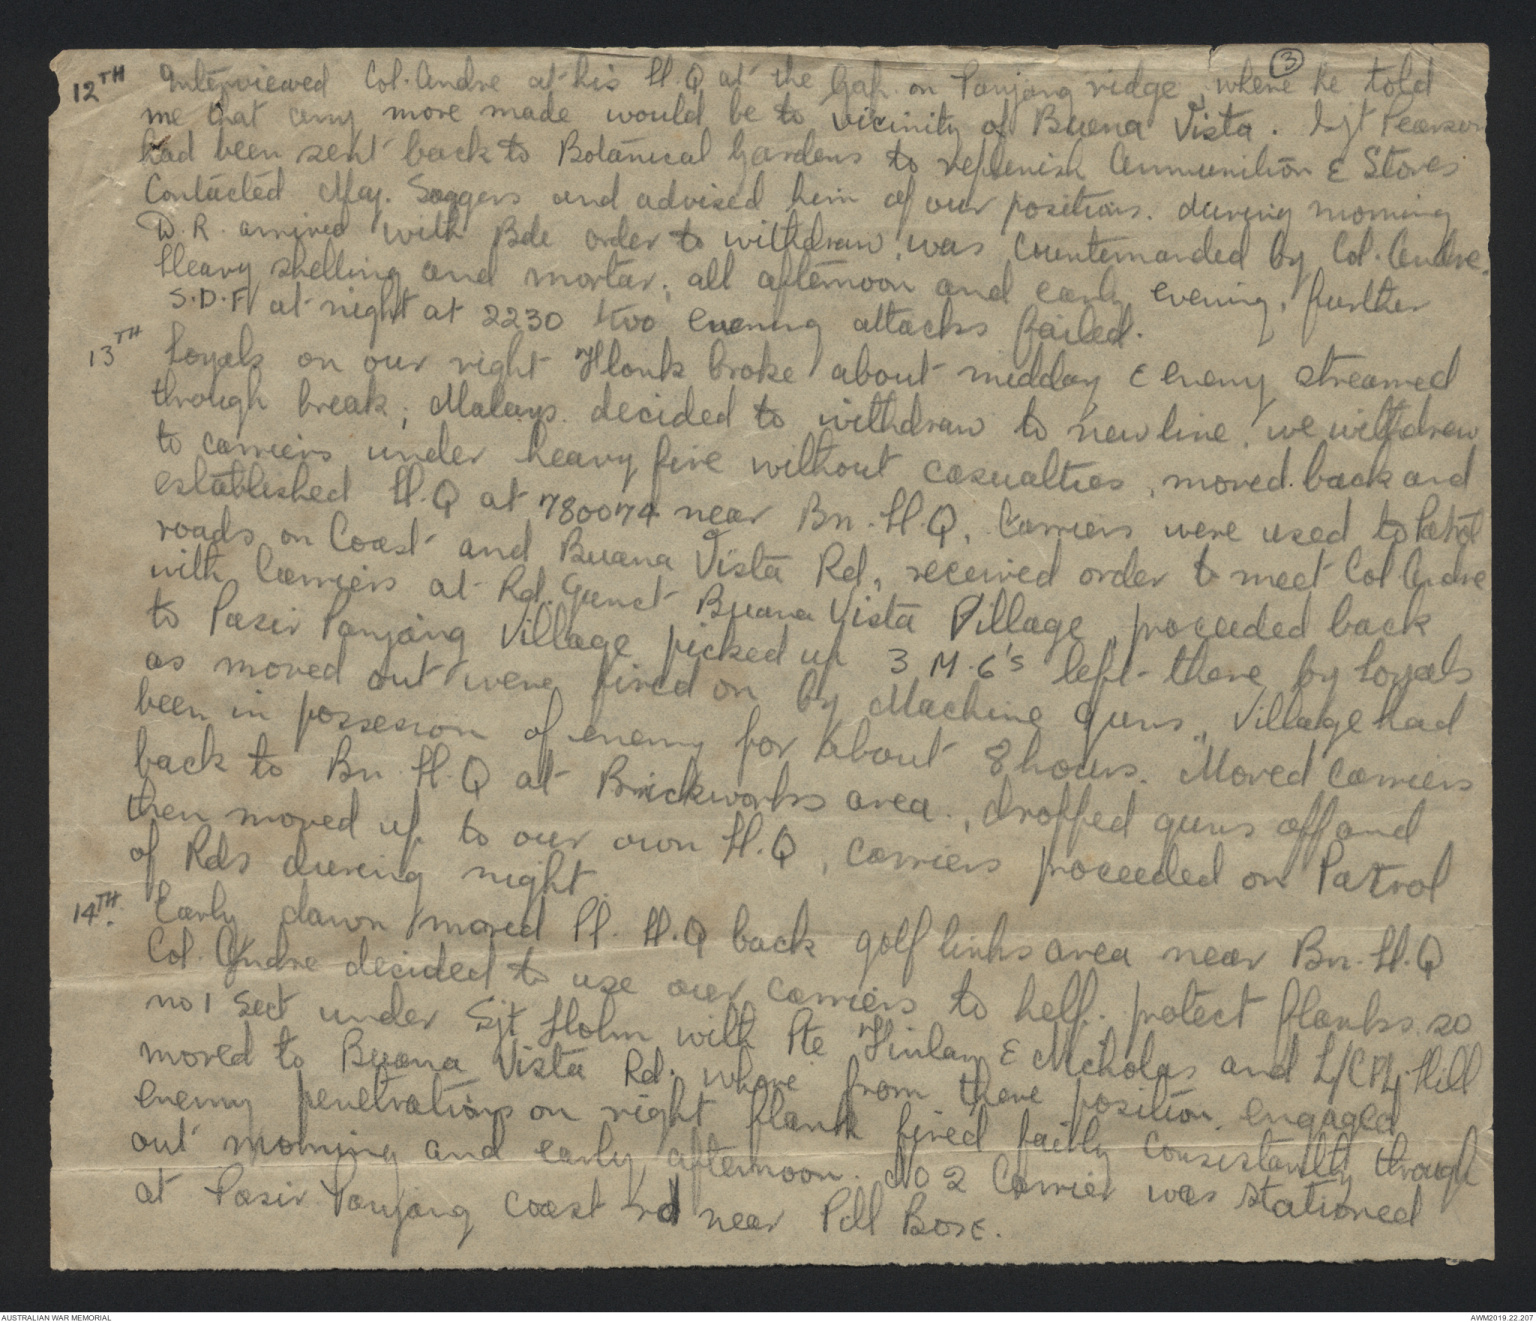 3
12TH Interviewed Col. Andre at his H.Q. at the Gap. on Panjang ridge, where he told
me that any more made would be to vicinity of Buena Vista. Sjt Pearson
had been sent back to Botanical Gardens to replenish Ammunition & Stores
Contacted Maj. Saggers and advised him of our positions. during morning
D.R. arrived with Bde order to withdraw, was countermanded by Col. Andre.
Heavy shelling and mortar, all afternoon and early evening, further
S.D.F. at night at 2230 two evening attacks failed.
13TH Loyals on our right flank broke about midday & enemy streamed
through break, Malays. decided to withdraw to new line. we withdrew
to carriers under heavy fire without casualties, moved back and
established H.Q at 780074 near Bn. H.Q. Carriers were used to Patrol
roads on Coast and Buana Vista Rd, received order to meet Col Andre
with Carriers at Rd. Junct Buana Vista Village, proceeded back
to Pasir Panjang Village picked up 3 M.G's left there by Loyals
as moved out were fired on by Machine Guns, Village had
been in possesion of enemy for about 8 hours. Moved carriers
back to Bn. H.Q at Brickworks area., dropped guns off and
then moved up to our own H.Q, carriers proceeded on Patrol
of Rds during night.
14TH. Early dawn moved Pl. H.Q back golf links area near Bn. H.Q
Col. Andre decided to use our carriers to help. protect flanks. so
no 1 Sect under Sjt Holm with Pte Finlay & McNicholas and L/CPL Hill
moved to Buana Vista Rd. where from there position. engaged
enemy penetrations on right flank fired faitly consistantly through
out morning and early afternoon. No 2 Carrier was stationed
at Pasir Panjang coast rd near Pill Box.
AUSTRALIAN WAR MEMORIAL
AWM2019.22.207